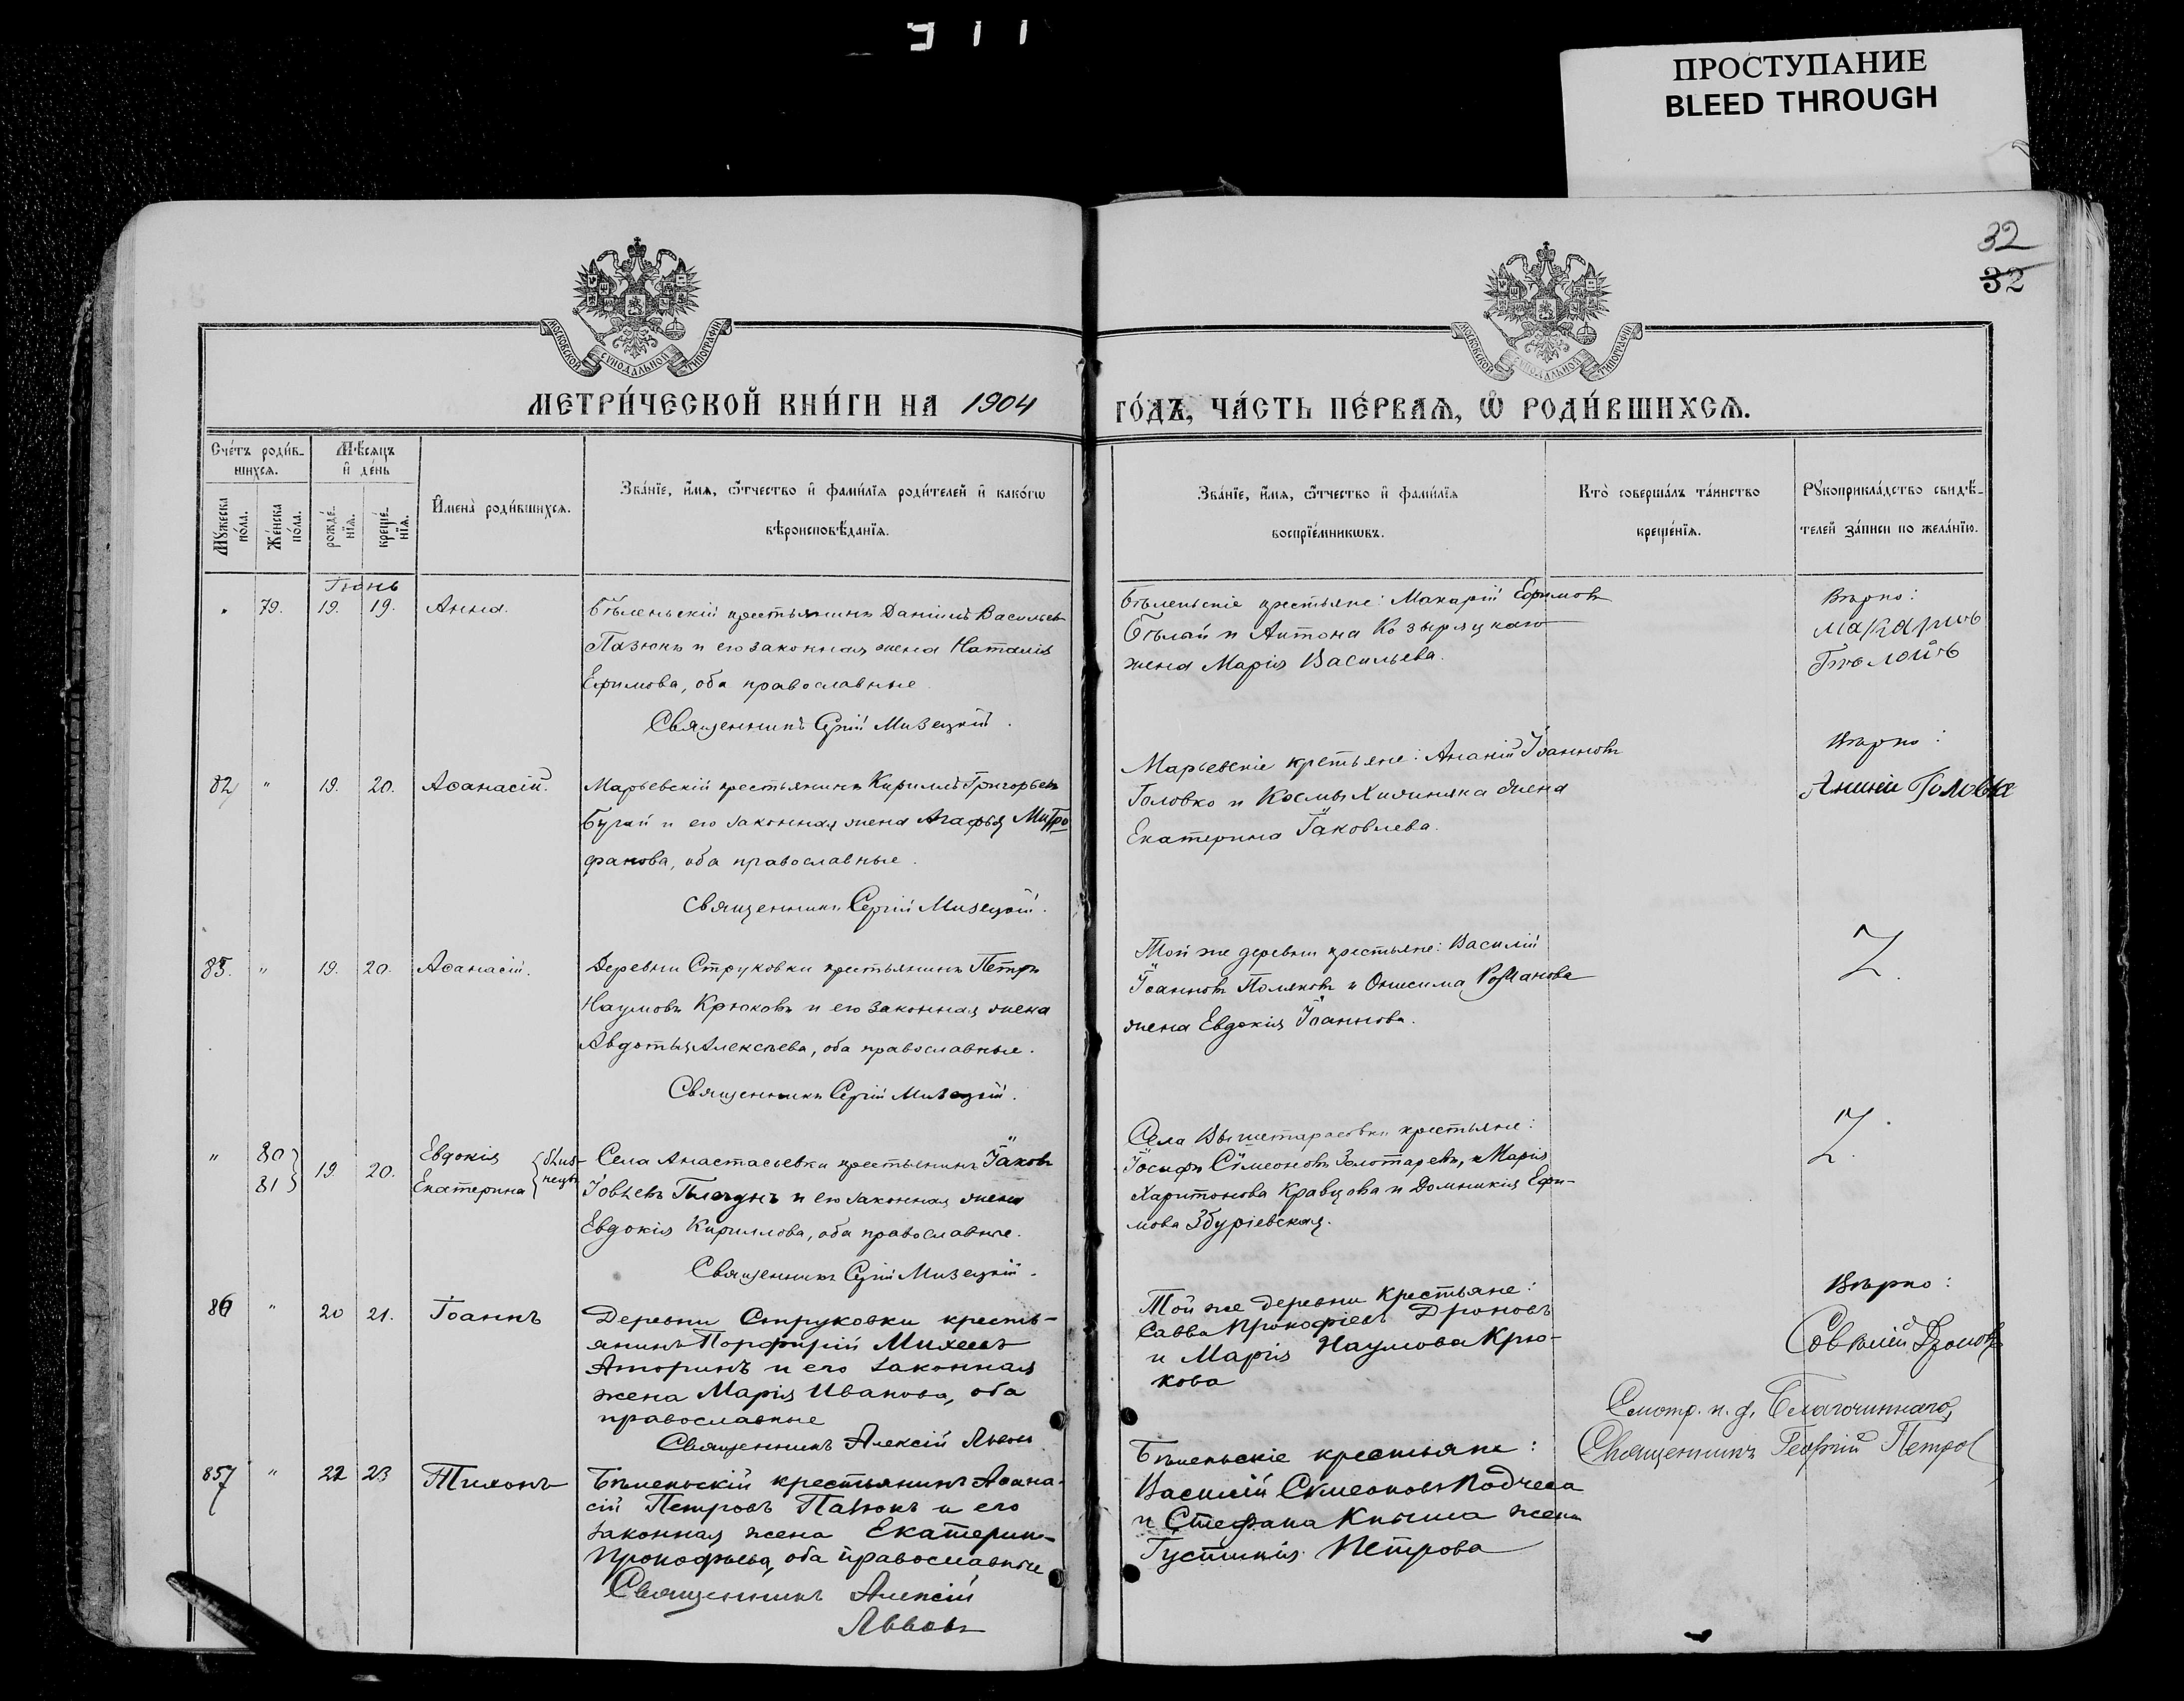 911
ПРОСТУПАНИЕ
BLEED THROUGH
32
32
МОСКОВСКОЙ СѴНОДАЛЬНОЙ ТИПОГРАФІИ
МОСКОВСКОЙ СѴНОДАЛЬНОЙ ТИПОГРАФІИ
МЕТРИ́ЧЕСКОЙ КНИ́ГИ НА 1904
ГО́ДЪ, ЧА́СТЬ ПЕ́РВАѦ, Ѽ РОДИ́ВШИХСѦ.
Сче́тъ роди́в-
шихсѧ.
Мѣ́сѧцъ
и҆ де́нь
Мꙋ́жеска
по́ла.
Же́нска
по́ла.
рожде́-
нїѧ.
креще́-
нїѧ.
И҆мена̀ роди́вшихсѧ.
Зва́нїе, и҆́мѧ, ѻ҆́тчество и҆ фами́лїѧ роди́телей и҆ како́гѡ
вѣроисповѣ́данїѧ.
Зва́нїе, и҆́мѧ, ѻ҆́тчество и҆ фами́лїѧ
воспрїе́мникѡвъ.
Кто̀ соверша́лъ та́инство
креще́нїѧ.
Рꙋкоприкла́дство свидѣ́-
телей за́писи по жела́нїю.
Іюнь
" 79. 19. 19. Анна.
Бѣленьскій крестьянинъ Даніилъ Васильевъ
Пазюкъ и его законная жена Наталія
Ефимова, оба православные
Священникъ Сергій Мизецкій.
Бѣленьскіе крестьяне: Макарій Ефимовъ
Бѣлай и Антона Козыряцкаго
жена Марія Васильева.
Вѣрно:
Макаріи
82 " 19. 20. Аѳанасій.
Марьевскій крестьянинъ Кириллъ Григорьевъ
Бугай и его законная жена Агафья Митро
фанова, оба православные.
Священникъ Сергій Мизецкій.
Марьевскіе крестьяне: Ананій Іоанновъ
Головко и Космы Хижняка жена
Екатерина Іаковлева.
Вѣрно:
Ананій Головко
85. " 19. 20. Аѳанасій.
Деревни Струковки крестьянинъ Петръ
Наумовъ Крюковъ и его законная жена
Авдотья Алексѣева, оба православные.
Священникъ Сергій Мизецкій.
Той же деревни крестьяне: Василій
Іоанновъ Поляковъ и Онисима Романова
жена Евдокія Іоаннова.
" 80 19 20. Евдокія близ-
81 Екатерина нецы
Села Анастасьевки крестьянинъ Іаковъ
Іовлевъ и его законная жена
Евдокія Кириллова, оба православные.
Священникъ Сергій Мизецкій.
Села Вышетарасовки крестьяне:
Іосифъ Сѵмеоновъ Золотаревъ, и Марія
Харитонова Кравцова и Домникія Ефи-
мова Збуріевская.
86 " 20 21. Іоаннъ
Деревни Струковки кресть-
янинъ Порфирій Михеевъ
Аторинъ и его законная
жена Марія Иванова, оба
православные
Священникъ Алексій Львовъ
Той же деревни крестьяне:
Савва Прокофіевъ Дроновъ
и Марія Наумова Крю-
кова
Вѣрно:
Дроновъ
Смотр. и. д. Благочиннаго,
Священникъ Георгій Петров
857 " 22 23 Тихонъ
Бѣленьскій крестьянинъ Аѳана-
сій Петровъ Пазюкъ и его
законная жена Екатерин-
Прокофьева, оба православные
Священникъ Алексій
Львовъ
Бѣленьскіе крестьяне:
Василій Сѵмеоновъ Подчеса
и Стефана Книша жена
Іустинія Петрова